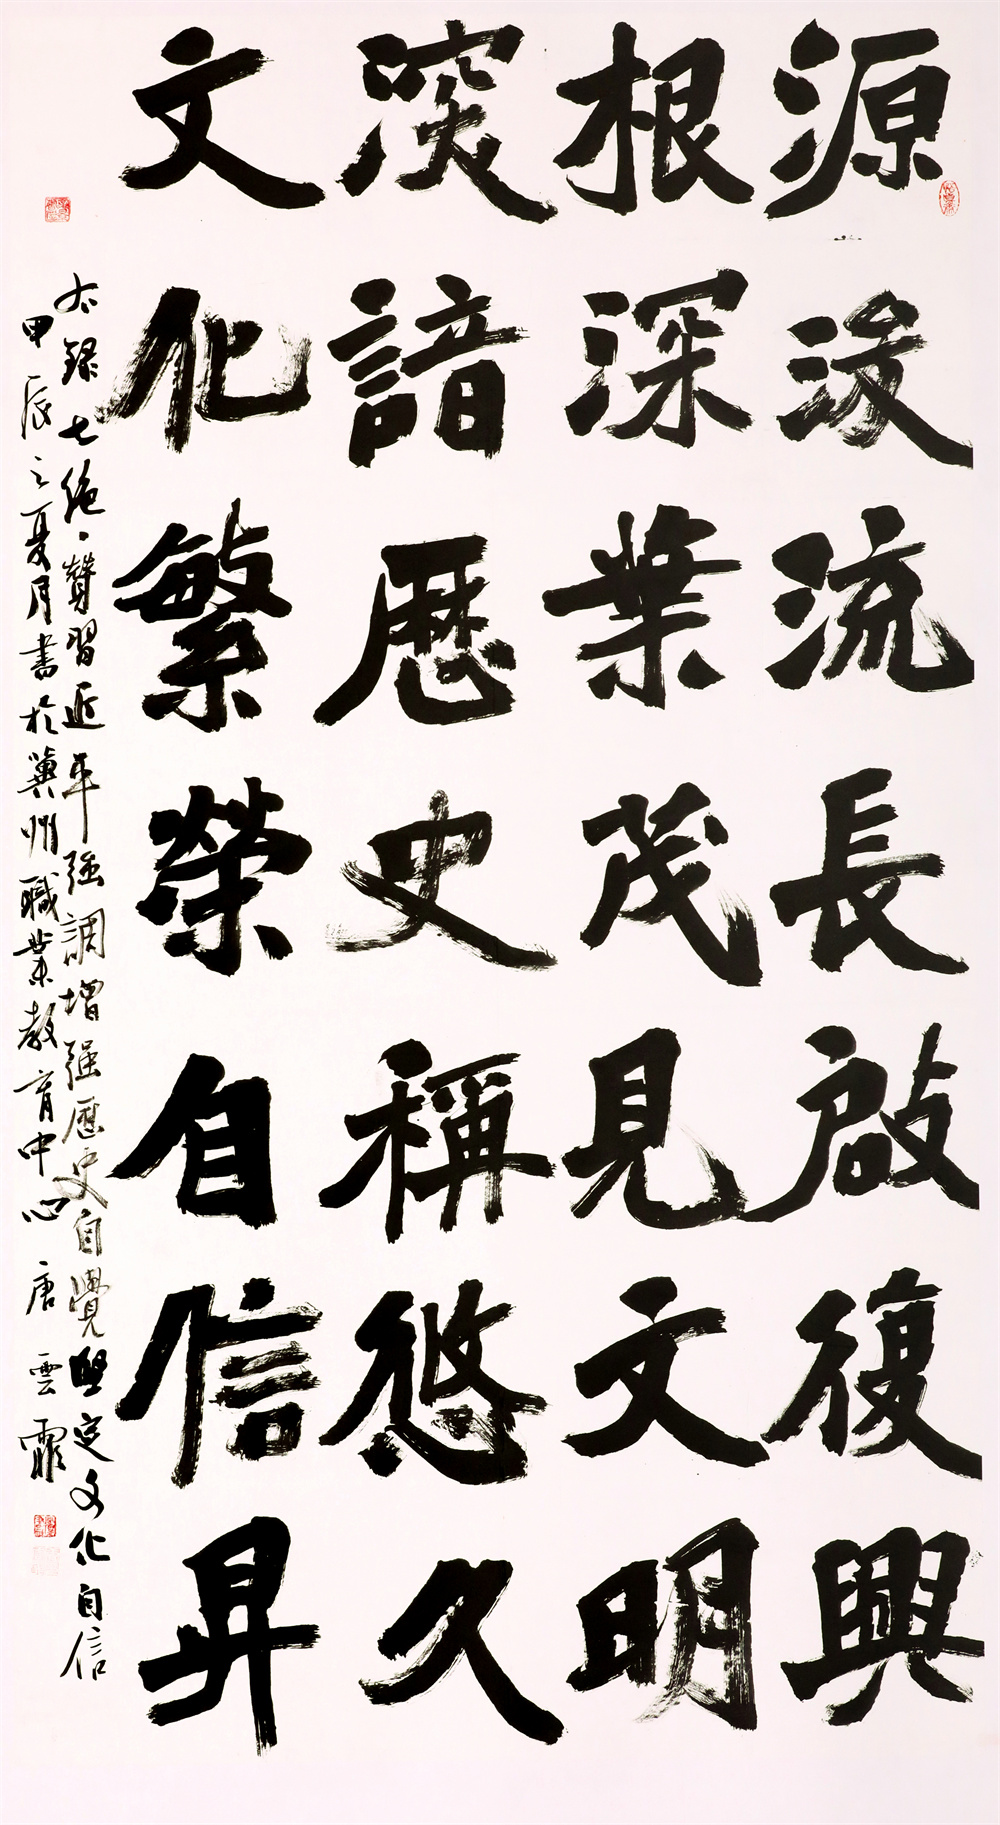 源浚流長啟復興
根深業茂見文明
深諳歷史稱悠久
文化繁榮自信昇
右録七絶·贊習近平強調增強歷史自覺堅定文化自信
甲辰之夏月書於冀州職業教育中心 唐雲霏